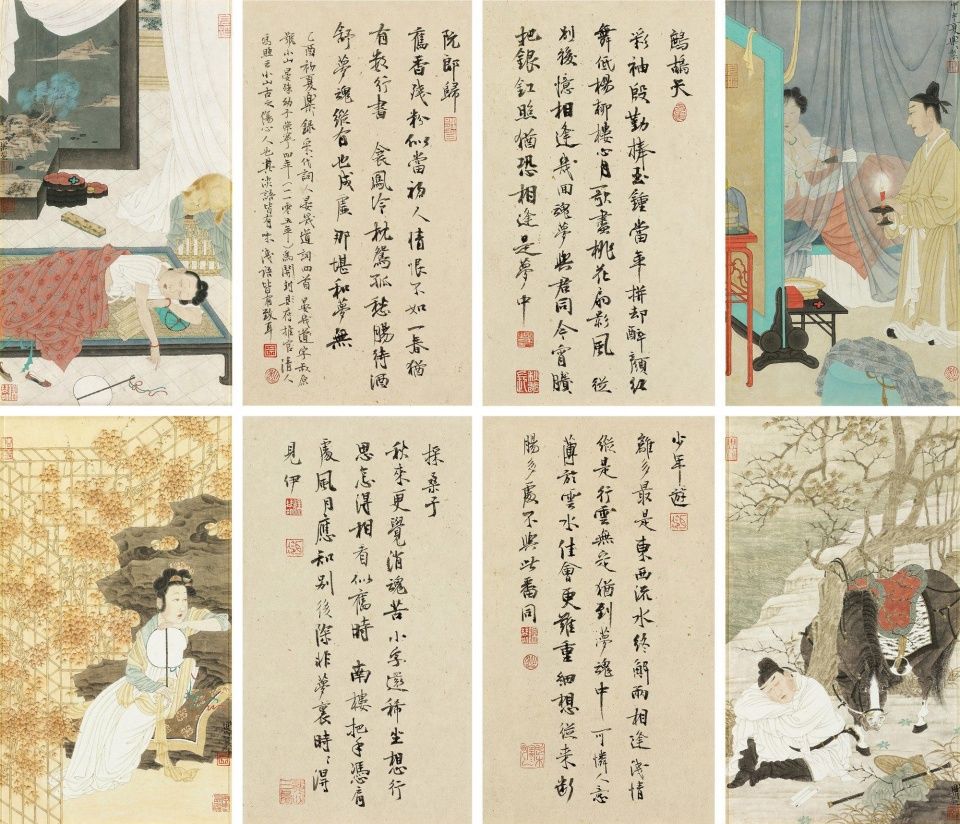 鷓鴣天
彩袖殷勤捧玉鍾當年拼却醉顏紅
舞低楊柳樓心月歌盡桃花扇影風 從
別後憶相逢幾回魂夢與君同今宵賸
把銀釭照猶恐相逢是夢中
阮郎歸
舊香殘粉似當初人情恨不如一春猶
有數行書 衾鳳冷枕鴛孤愁腸待酒
舒夢魂縱有也成虛那堪和夢無
乙酉初夏樂錄宋代詞人晏幾道詞四首 晏幾道字叔原
號小山晏殊幼子崇寧四年(一一零五年)為開封府推官 清人
馮煦云小山古之傷心人也其淡語皆有味淺語皆有致耳
少年遊
離多最是東西流水終解兩相逢淺情
縱是行雲無定猶到夢魂中 可憐人意
薄於雲水佳會更難重細想從來斷
腸多處不與此番同
採桑子
秋來更覺消魂苦小字還稀坐想行
思怎得相看似舊時 南樓把手憑肩
處風月應知別後除非夢裏時ミ得
見伊